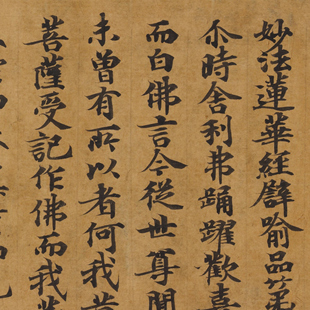 妙法蓮華經譬喻品第
尒時舍利弗踊躍歡喜
而白佛言今從世尊聞
未曾有所以者何我昔
菩薩受記作佛而我等